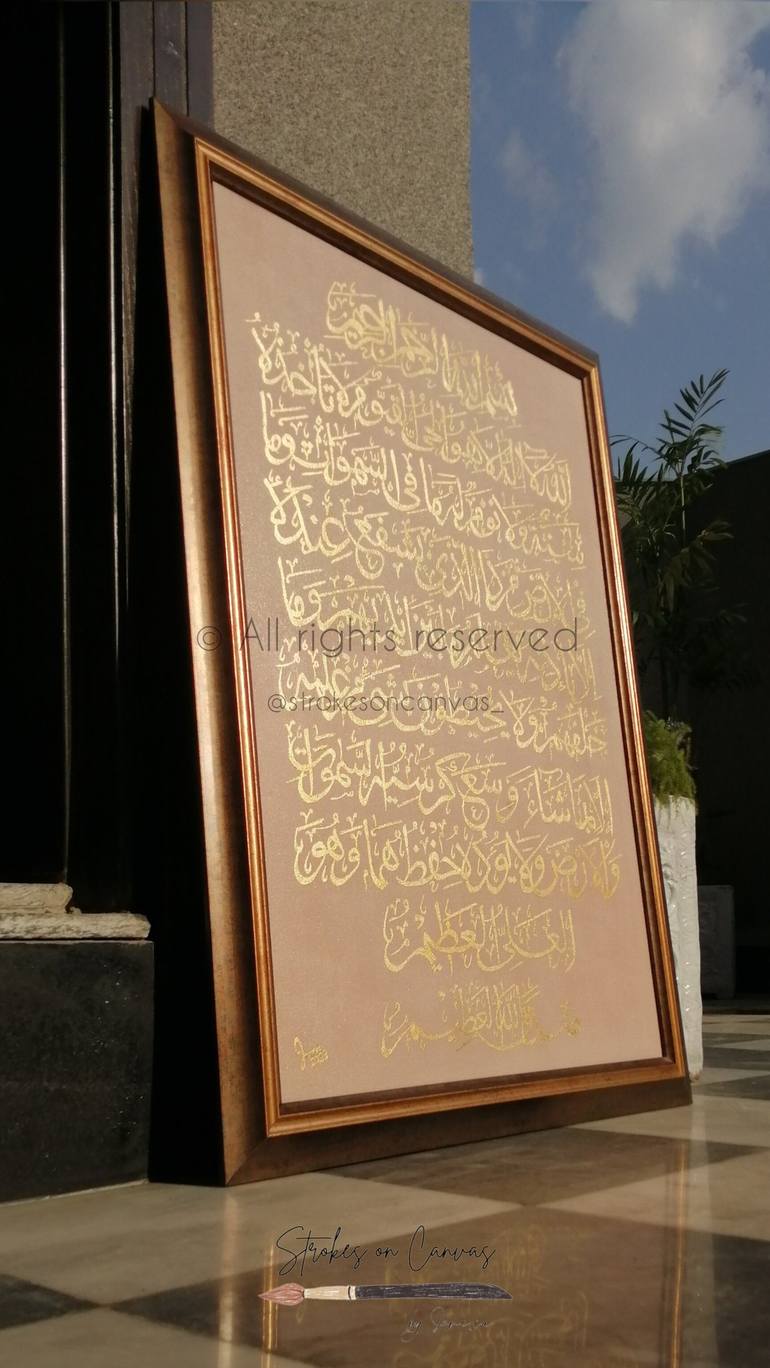 بسم الله الرحمن الرحيم
الله لا اله الا هو الحي القيوم لا تأخذه
سنة ولا نوم له ما في السموات وما
في الارض من ذا الذي يشفع عنده
الا باذنه يعلم ما بين ايديهم وما
خلفهم ولا يحيطون بشيء من علمه
الا بما شاء وسع كرسيه السموات
والارض ولا يؤده حفظهما وهو
العلي العظيم
صدق الله العظيم
© All rights reserved
@strokesoncanvas_
Strokes on Canvas
by